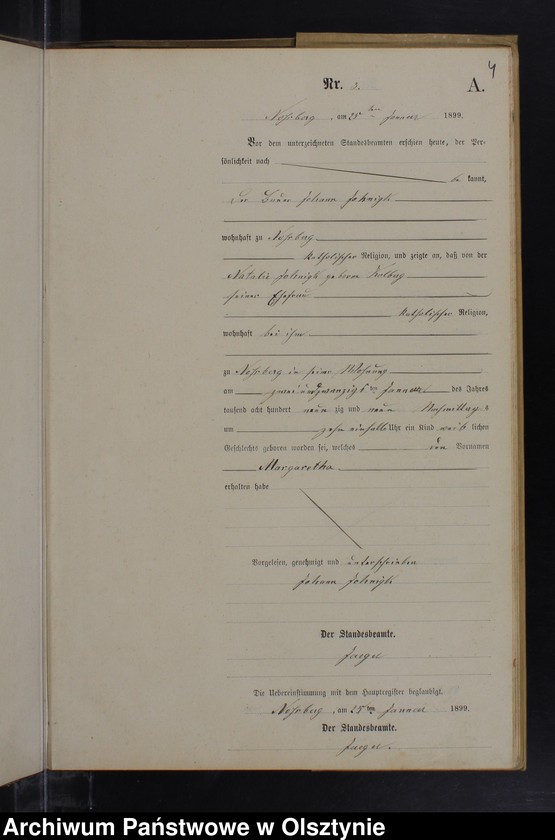 4
Nr. 3. A.
am 25 ten Januar 1899.
Vor dem unterzeichneten Standesbeamten erschien heute, der Per-
sönlichkeit nach
be kannt,
der Johann
wohnhaft zu
katholischer Religion, und zeigte an, daß von der
Natalie geborne Kolberg
seiner Ehefrau
katholischer Religion,
wohnhaft bei ihm
zu in seiner Wohnung
am zweiundzwanzigsten Januar des Jahres
tausend acht hundert neun zig und neun Nachmittags
um zehn einhalb Uhr ein Kind weib lichen
Geschlechts geboren worden sei, welches den Vornamen
Margaretha
erhalten habe
Vorgelesen, genehmigt und unterschrieben
Johann
Der Standesbeamte.
Jaeger
Die Uebereinstimmung mit dem Hauptregister beglaubigt.
am 25 ten Januar 1899.
Der Standesbeamte.
Jaeger.
Archiwum Państwowe w Olsztynie